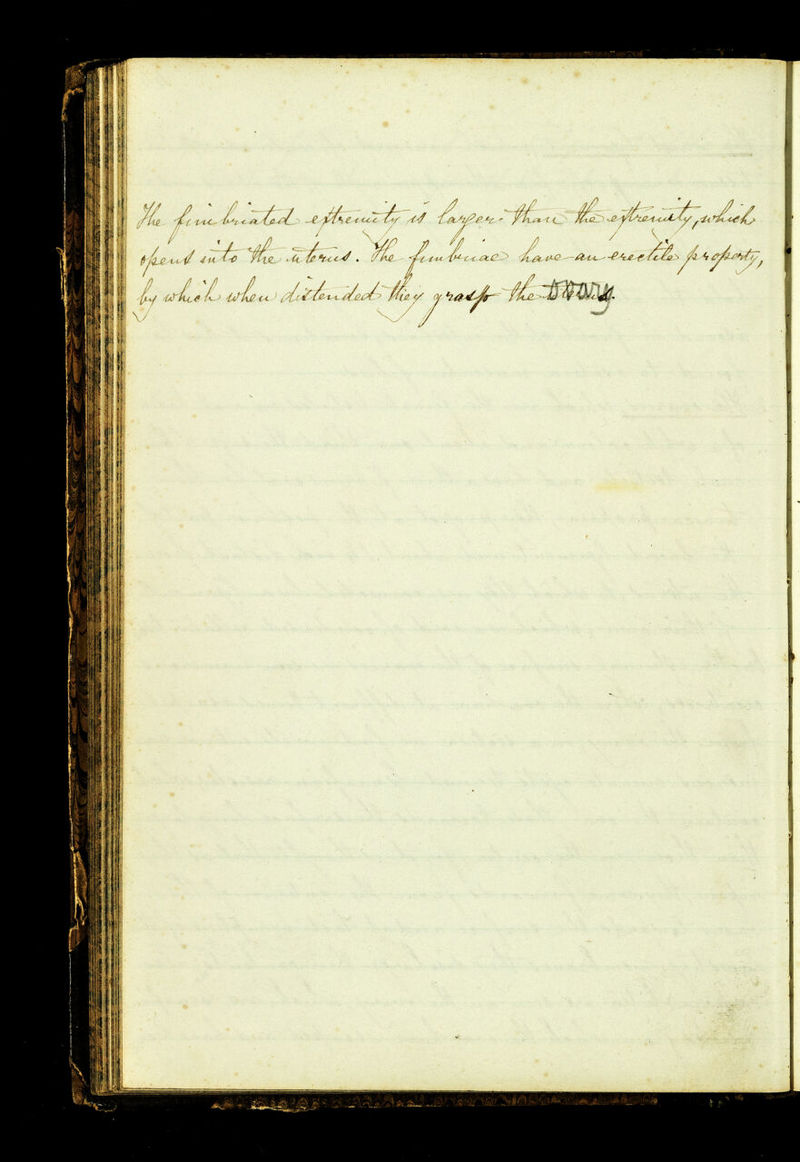 The fimbriated extremity is larger than the extremity, which
opens into the uterus. The fimbriae have an erectile property,
by which when distended they grasp the ovary.